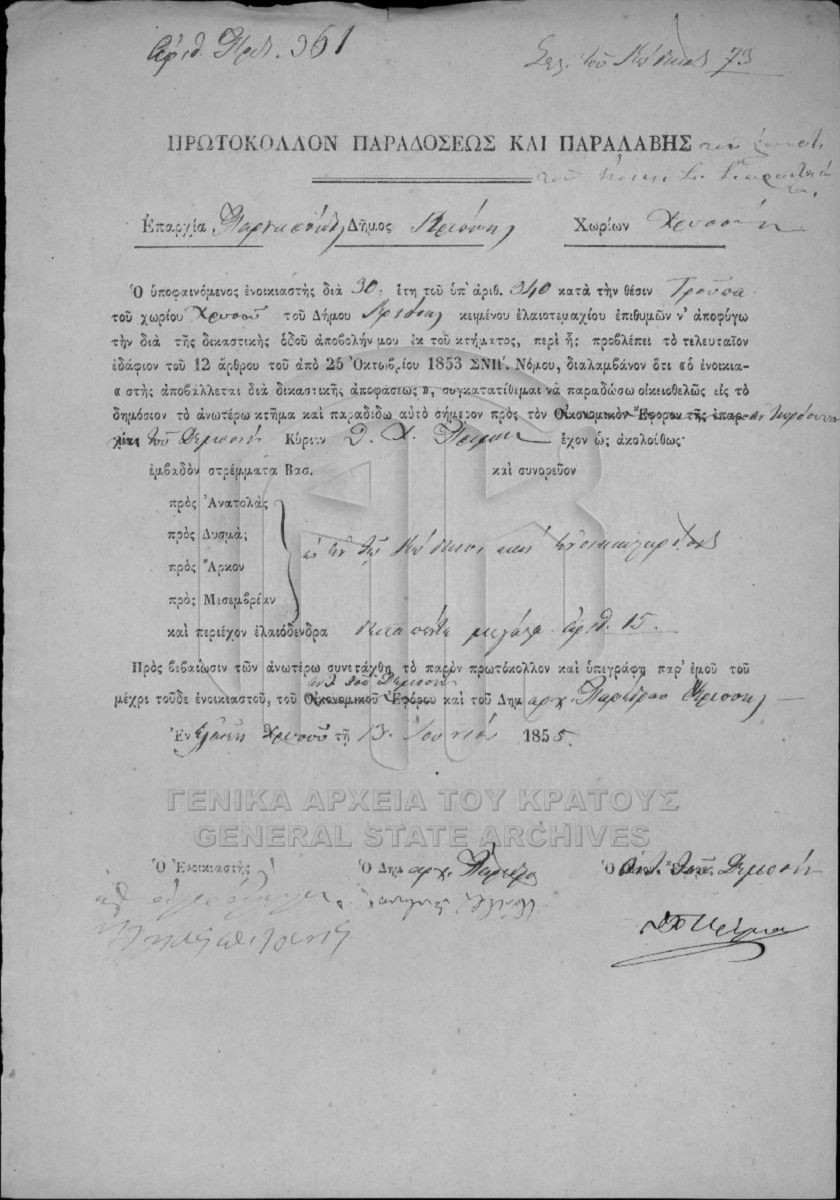 Ἀριθ. Πρωτ. 361
Σελ. τοῦ Κώδικος 73
ΠΡΩΤΟΚΟΛΛΟΝ ΠΑΡΑΔΟΣΕΩΣ ΚΑΙ ΠΑΡΑΛΑΒΗΣ
Ἐπαρχία Παρνασσίδος Δῆμος Κρίσσης Χωρίων Χρυσοῦ
Ὁ ὑποφαινόμενος ἐνοικιαστὴς διὰ 30 ἔτη τοῦ ὑπ' ἀριθ. 340 κατὰ τὴν θέσιν Τροῦπα
τοῦ χωρίου Χρυσοῦ τοῦ Δήμου Κρίσσης κειμένου ἐλαιοτεμαχίου ἐπιθυμῶν ν' ἀποφύγω
τὴν διὰ τῆς δικαστικῆς ὁδοῦ ἀποβολήν μου ἐκ τοῦ κτήματος, περὶ ἧς προβλέπει τὸ τελευταῖον
ἐδάφιον τοῦ 12 ἄρθρου τοῦ ἀπὸ 25 Ὀκτωβρίου 1853 ΣΝΠ'. Νόμου, διαλαμβάνον ὅτι «ὁ ἐνοικια-
« στὴς ἀποβάλλεται διὰ δικαστικῆς ἀποφάσεως», συγκατατίθεμαι νὰ παραδώσω οἰκειοθελῶς εἰς τὸ
δημόσιον τὸ ἀνωτέρω κτῆμα καὶ παραδίδω αὐτὸ σήμερον πρὸς τὸν Οἰκονομικὸν Ἔφορον τῆς ἐπαρ-
χίας τοῦ Δεμοσίου Κύριον Δ. Χ. ἔχον ὡς ἀκολούθως·
ἐμβαδὸν στρέμματα Βασ. καὶ συνορεῦον
πρὸς Ἀνατολὰς
πρὸς Δυσμὰς
πρὸς Ἄρκον
πρὸς Μεσεμβρίαν
ὡς ἐν τῷ Κώδικι καὶ
καὶ περιέχον ἐλαιόδενδρα δεκαπέντε μεγάλα ἀριθ. 15.
Πρὸς βιβαίωσιν τῶν ἀνωτέρω συνετάχθη τὸ παρὸν πρωτόκολλον καὶ ὑπεγράφη παρ' ἐμοῦ τοῦ
μέχρι τοῦδε ἐνοικιαστοῦ, τοῦ Οἰκονομικοῦ Ἐφόρου καὶ τοῦ Δημ αρχ. Παρέδρου Κρίσσης
Ἐν Χρυσοῦ τῇ 13 Ἰουνίου 1855.
ΓΕΝΙΚΑ ΑΡΧΕΙΑ ΤΟΥ ΚΡΑΤΟΥΣ
GENERAL STATE ARCHIVES
Ὁ Ἐνοικιαστὴς Ὁ Δημ αρχ. Πάρεδρος Ὁ